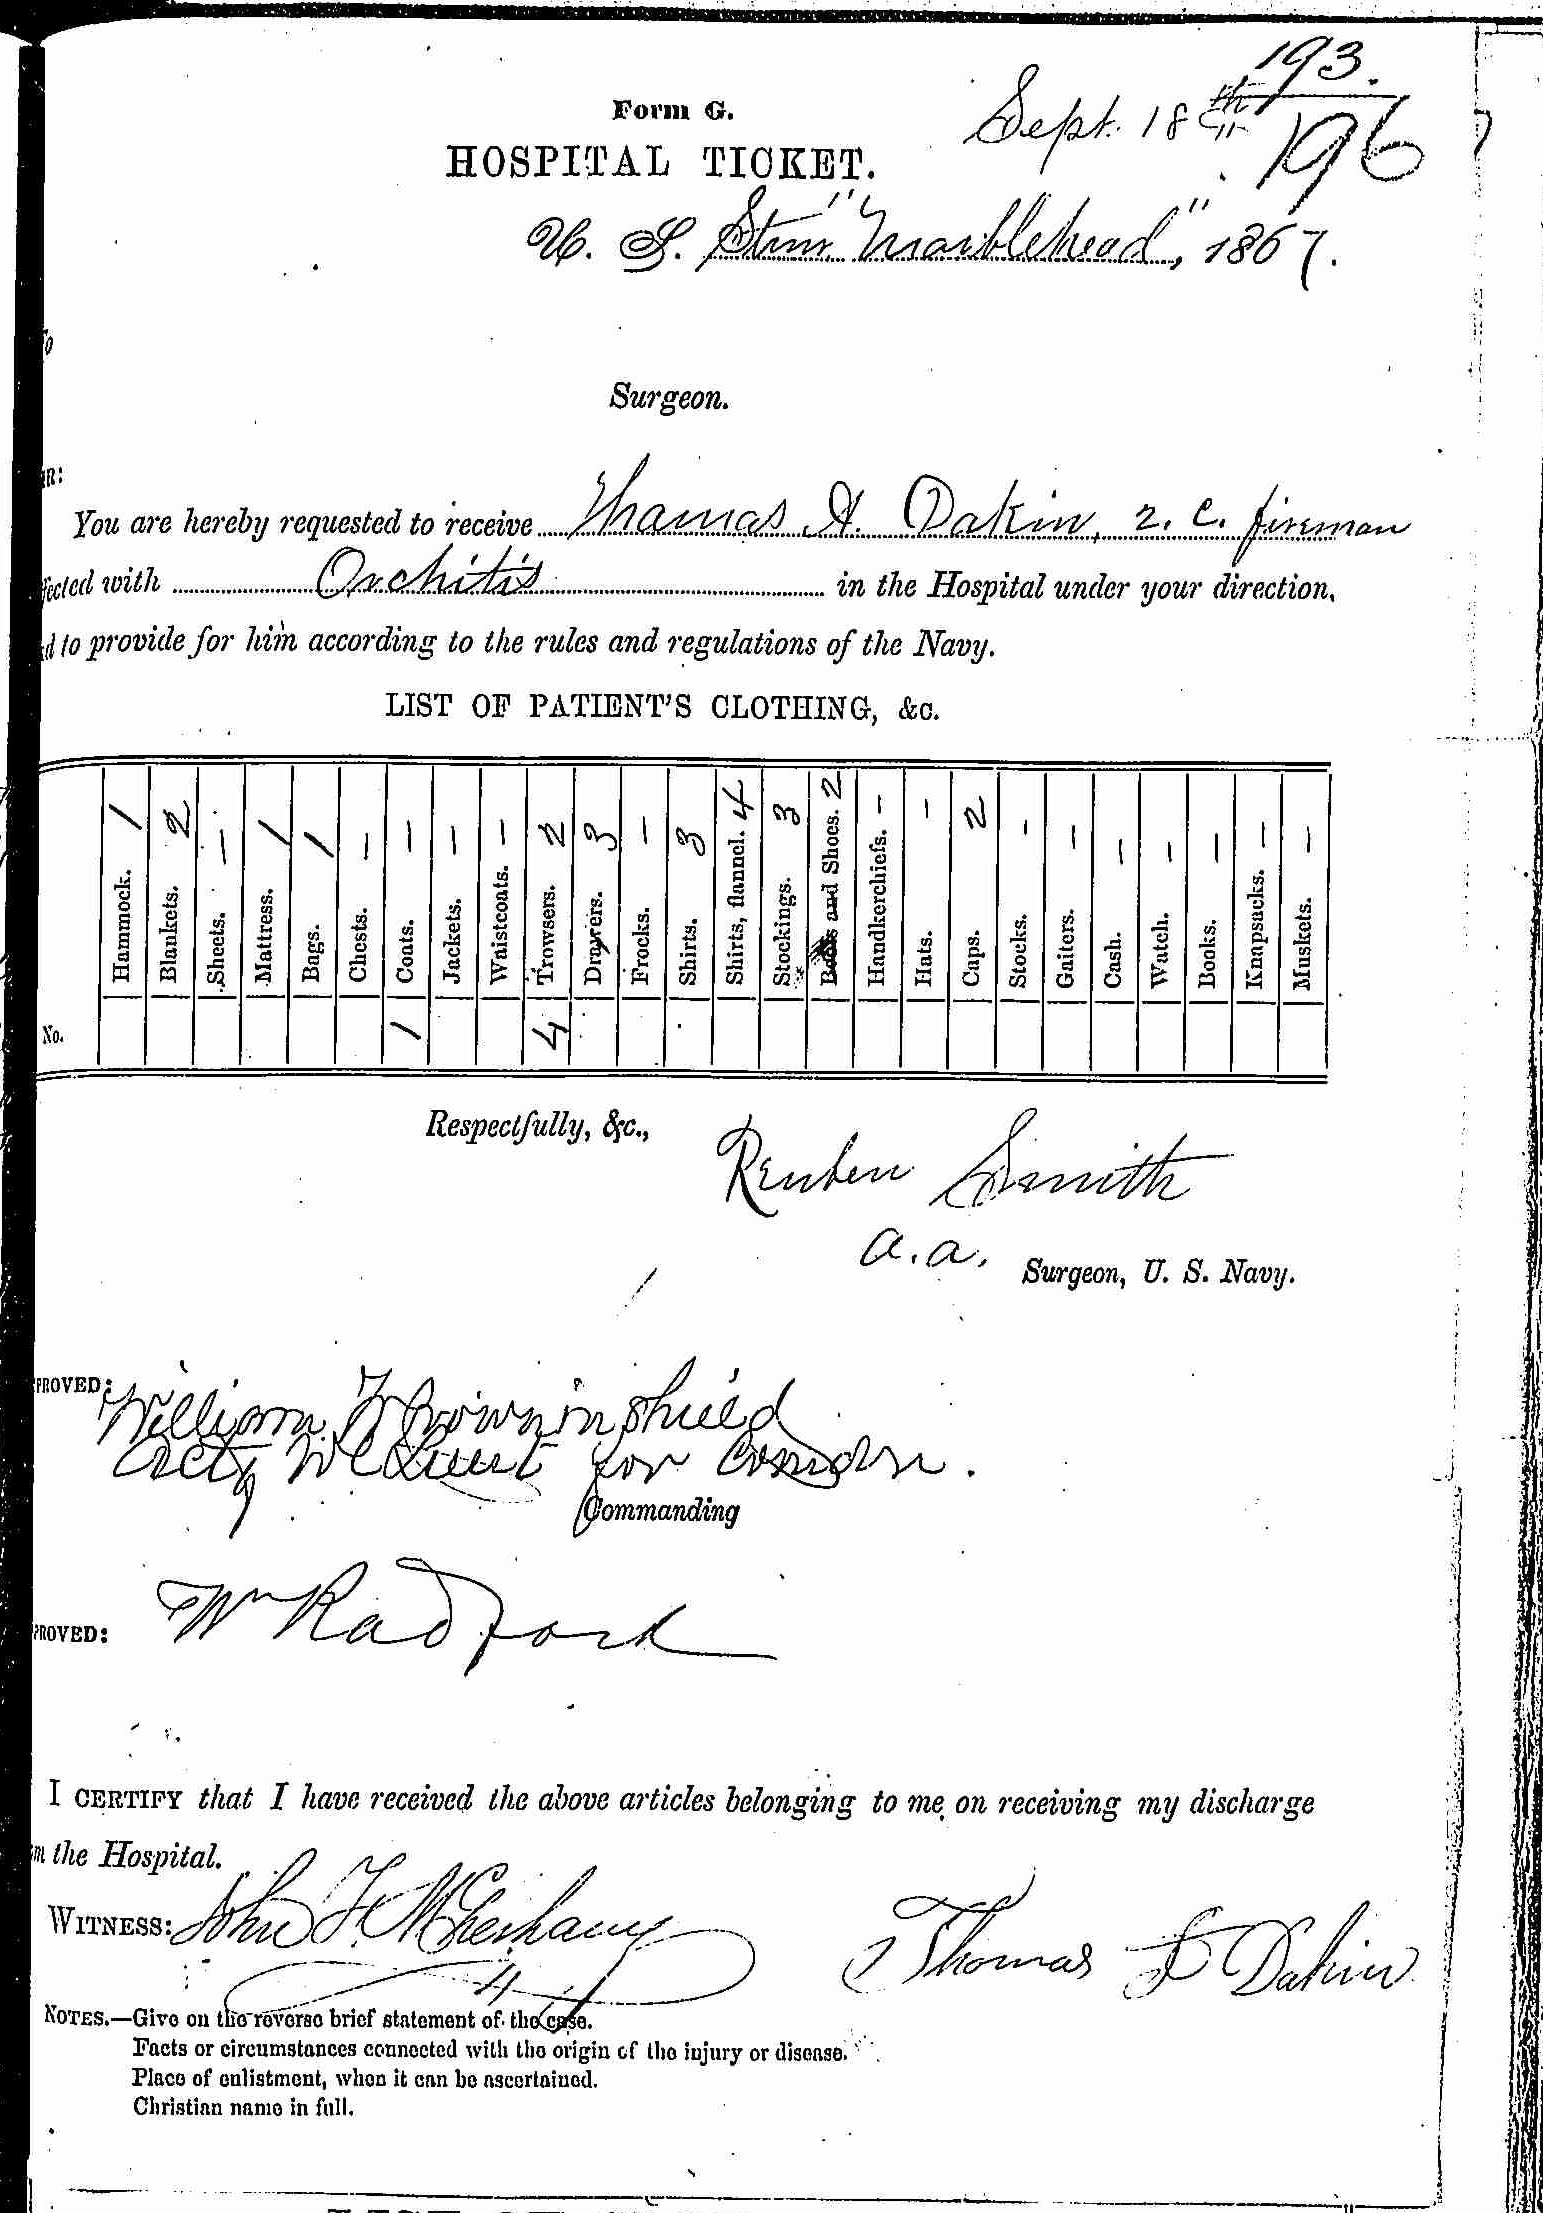 193.
Form G. Sept. 18th 196
HOSPITAL TICKET.
U. S. Stmr. "Marblehead", 1867.
To
Surgeon.
IR:
You are hereby requested to receive Thomas A. Dakin, 2. C. fireman
fected with Orchitis in the Hospital under your direction,
d to provide for him according to the rules and regulations of the Navy.
LIST OF PATIENT'S CLOTHING, &c.
Hammock. 1
Blankets. 2
Sheets. –
Mattress. 1
Bags. 1
Chests. –
Coats. –
Jackets. –
Waistcoats. –
Trowsers. 2
Drawers. 3
Frocks. –
Shirts. 3
Shirts, flannel. 4
Stockings. 3
Boots and Shoes. 2
Handkerchiefs. –
Hats. –
Caps. 2
Stocks. –
Gaiters. –
Cash. –
Watch. –
Books. –
Knapsacks. –
Muskets. –
No. 1 4
Respectfully, &c.,
Reuben Smith
a. a. Surgeon, U. S. Navy.
PROVED:
William F Browninshield
Actg Lieut for Comdr.
Commanding
PROVED: Wm Radford
I CERTIFY that I have received the above articles belonging to me on receiving my discharge
m the Hospital.
WITNESS: John F.
Thomas F Dakin
NOTES.—Give on the reverse brief statement of the case.
Facts or circumstances connected with the origin of the injury or disease.
Place of enlistment, when it can be ascertained.
Christian name in full.